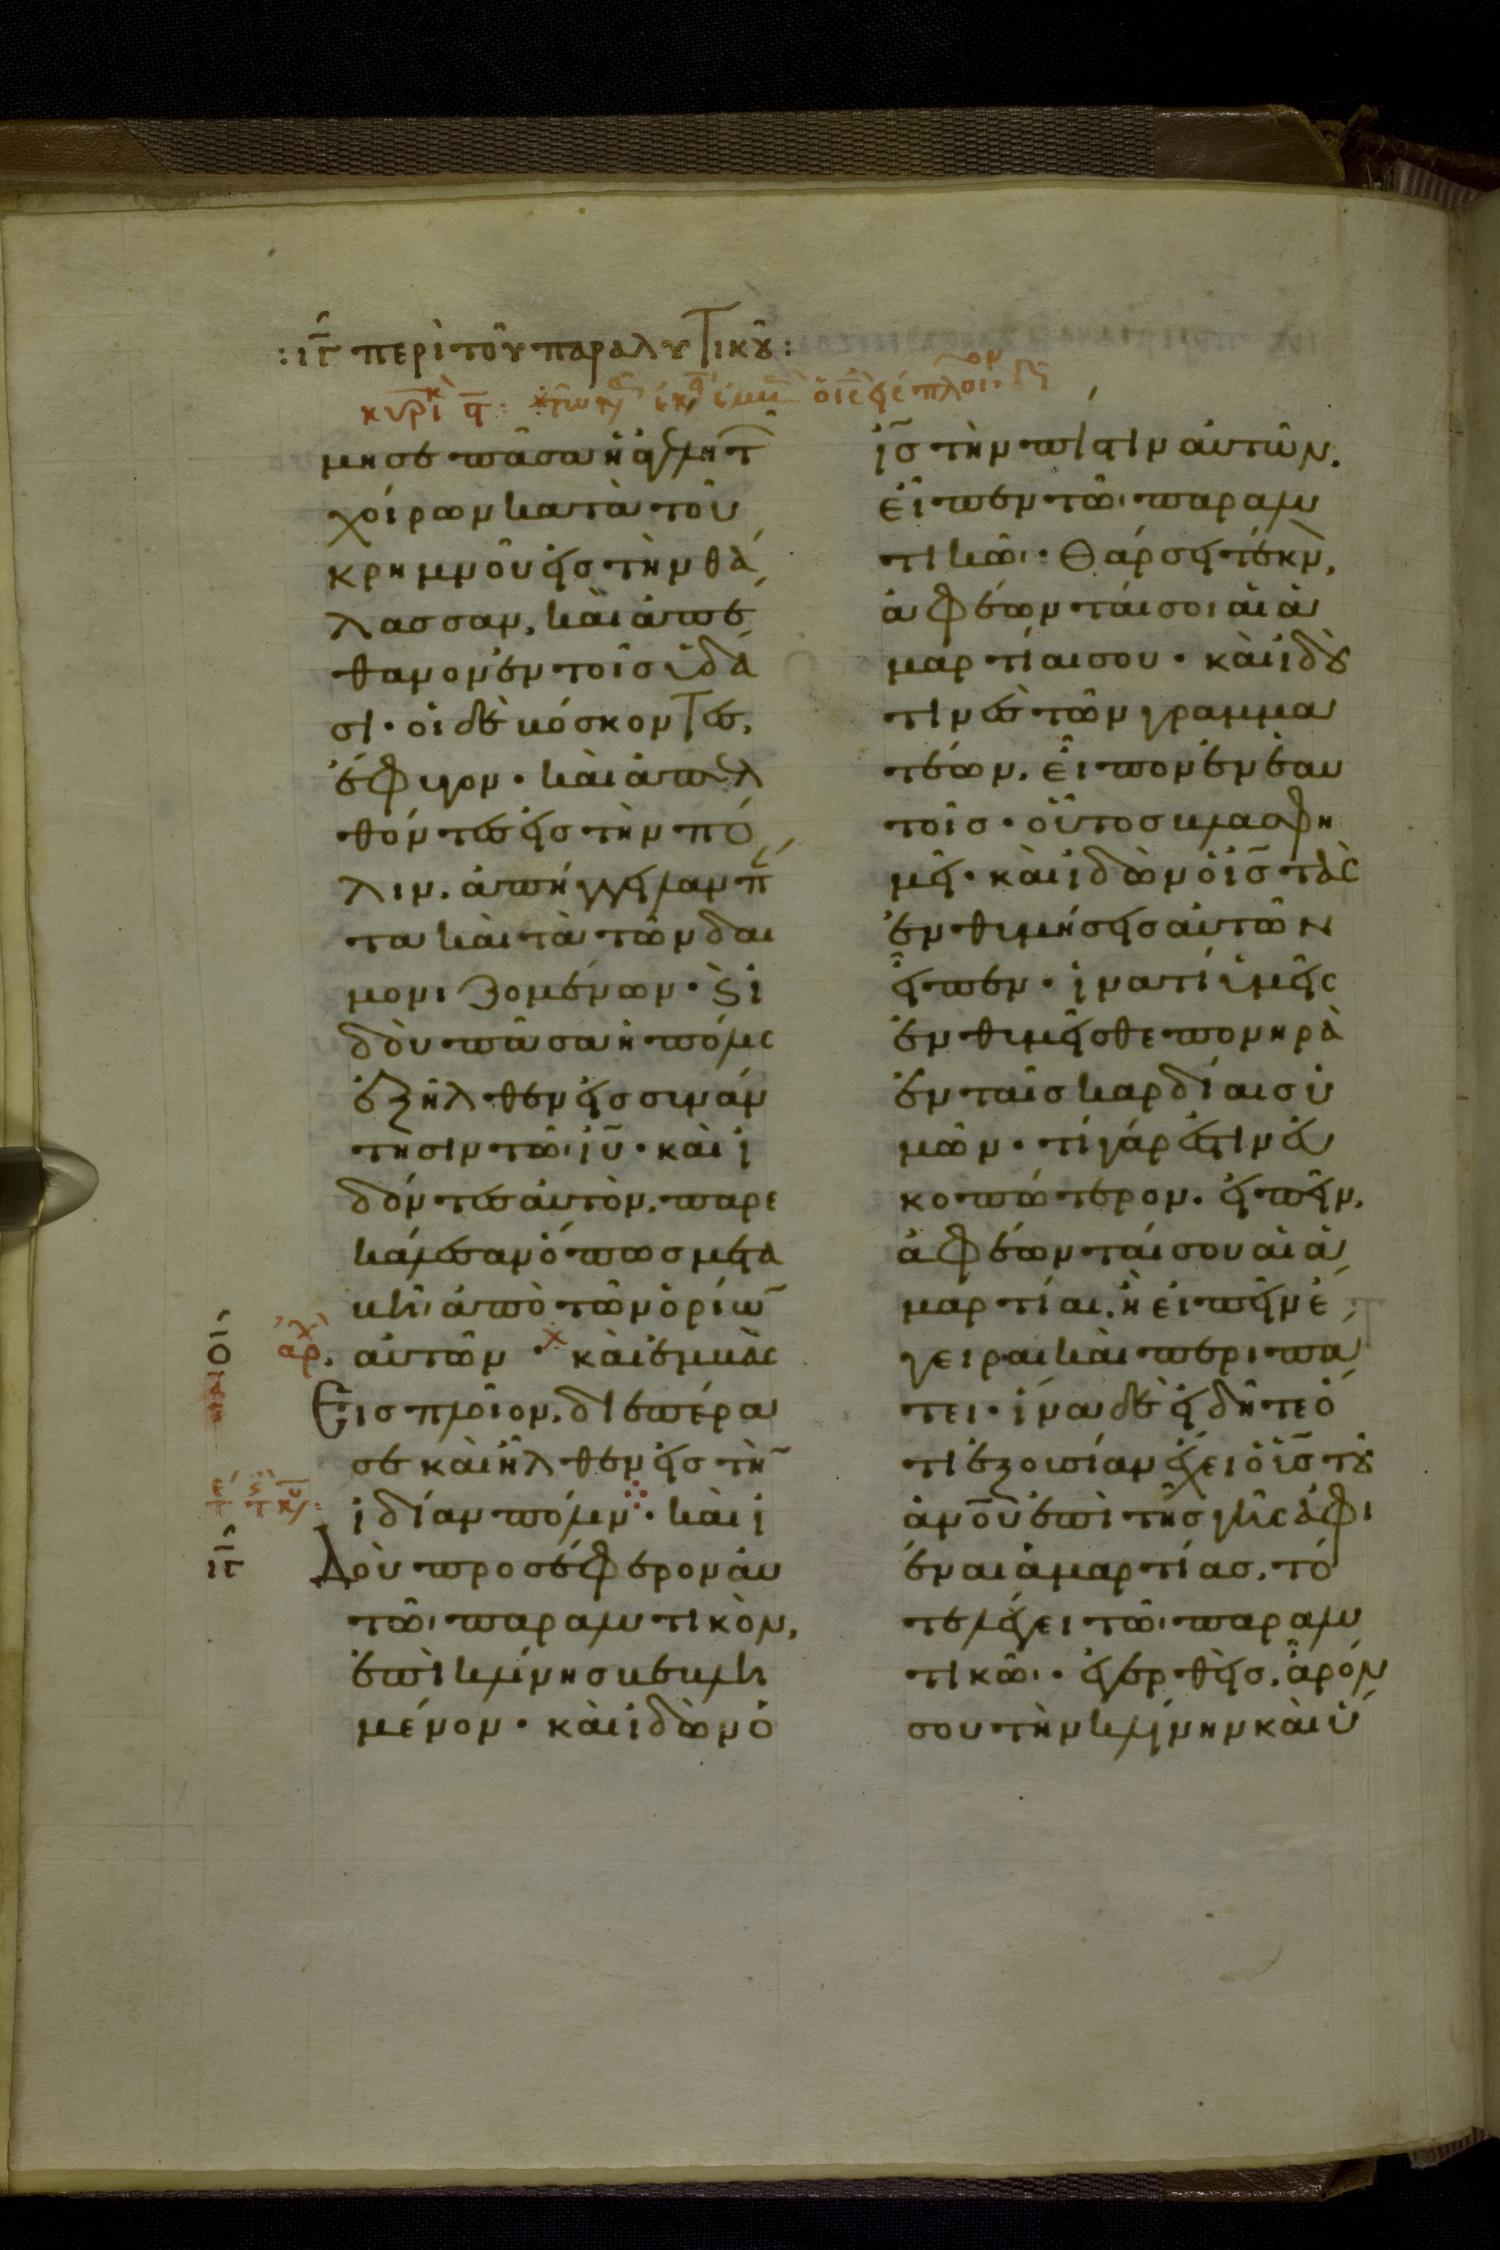 :ιγ̅ περὶ τοῦ παραλυτικοῦ:
κυρι ϛ̅:
μησε πᾶσα ἡ ἀγέλη τ̅
χοίρων κατὰ τοῦ
κρημνοῦ εἰς τὴν θά
λασσαν, καὶ ἀπέ
θανον ἐν τοῖς ὕδα
σι· οἱ δὲ βόσκοντες,
ἔφυγον· καὶ ἀπελ
θόντες εἰς τὴν πό
λιν, ἀπήγγειλαν π̅
τα καὶ τὰ τῶν δαι
μονιζομένων· ϗ ἰ
δοὺ πᾶσα ἡ πόλις
ἐξῆλθεν εἰς συνάν
τησιν τῶ ιυ̅· καὶ ἰ
δόντες αὐτὸν, παρε
κάλεσαν ὅπως μετα
βῆ ἀπὸ τῶν ὁρίω̅
αρχ. αὐτῶν · καὶ ἐμβὰς
Εἰς πλοῖον, διεπέρα
σε καὶ ἦλθεν εἰς τὴ̅
ἰδίαν πόλιν· καὶ ἰ
ιγ̅ Δοὺ προσέφερον αυ
τῶ παραλυτικὸν,
ἐπὶ κλίνης βεβλη
μένον· καὶ ἰδὼν ὁ
ις̅ τὴν πίστιν αὐτῶν,
εἶπεν τῶ παραλυ
τικῶ· Θάρσει τέκν,
ἀφέωνταί σοι αἱ ἁ
μαρτίαι σου· καὶ ἰδοὺ
τινὲς τῶν γραμμα
τέων, εἶπον ἐν ἑαυ
τοῖς· οὗτος βλασφη
μεῖ· καὶ ἰδὼν ὁ ις̅ τὰς
ἐνθυμήσεις αὐτῶν
εἶπεν· ἱνατί ὑμεῖς
ἐνθυμεῖσθε πονηρὰ
ἐν ταῖς καρδίαις ὑ
μῶν· τί γάρ ἐστιν εὐ
κοπώτερον, εἰπεῖν,
ἀφέωνταί σου αἱ ἁ
μαρτίαι, ἢ εἰπεῖν ἔ
γειραι καὶ περιπά
τει· ἵνα δὲ εἰδῆτε ὅ
τι ἐξουσίαν ἔχει ὁ ϊς̅ τοῦ
ἀνο̅υ ἐπὶ τῆς γῆς ἀφι
έναι ἁμαρτίας, τό
τε λέγει τῶ παραλυ
τικῶ· ἐγερθεὶς, ἆρόν
σου τὴν κλίνην καὶ ὕ